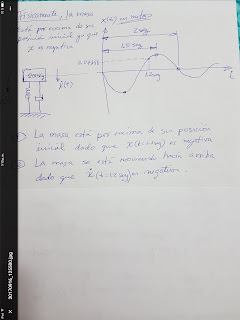 Físicamente, la masa
está por encima de su
posición inicial ya que
x es negativa
x(t) en metros
2 seg
1.5 seg
t
1.2 seg
F(t)
① La masa está por encima de su posición
inicial dado que x(t=1 seg) es negativa
② La masa se está moviendo hacia arriba
dado que ẋ(t=1.2 seg) es negativa.
20170916_155800.jpg